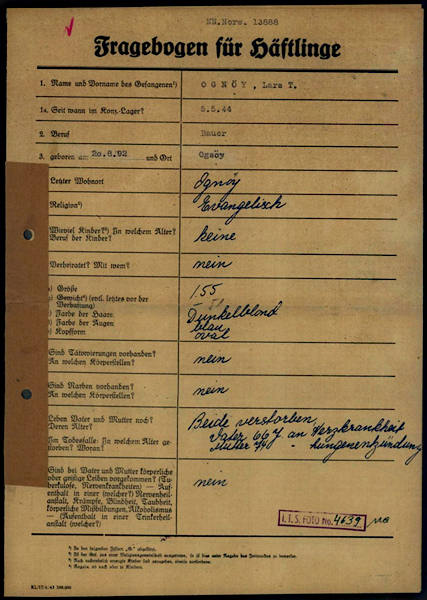 NN.Norw. 13888
Fragebogen für Häftlinge
1. Name und Vorname des Gefangenen¹) OGNÖY, Lars T.
1a. Seit wann im Konz.-Lager? 5.5.44
2. Beruf Bauer
3. geboren am 20.8.92 und Ort Ogsöy
Letzter Wohnort Ognöy
Religion²) Evangelisch
Wieviel Kinder?³) In welchem Alter? keine
Beruf der Kinder?
Verheiratet? Mit wem? nein
Größe 1.55
Gewicht⁴) (evtl. letztes vor der
Verhaftung)
Farbe der Haare Dunkelblond
Farbe der Augen blau
Kopfform oval
Sind Tätowierungen vorhanden? nein
An welchen Körperstellen?
Sind Narben vorhanden? nein
An welchen Körperstellen?
Leben Vater und Mutter noch? Beide verstorben,
Deren Alter?
Im Todesfalle: In welchem Alter ge- Vater 66 J. an Herzkrankheit
storben? Woran? Mutter 74 " Lungenenzündung
Sind bei Vater und Mutter körperliche nein
oder geistige Leiden vorgekommen? (Tu-
berkulose, Nervenkrankheiten) — Auf-
enthalt in einer (welcher?) Nervenheil-
anstalt, Krämpfe, Blindheit, Taubheit,
körperliche Mißbildungen, Alkoholismus
— (Aufenthalt in einer Trinkerheil-
anstalt (welcher?)
I.T.S. FOTO No. 4639
¹) In der folgenden Ziffern „G." abgekürzt.